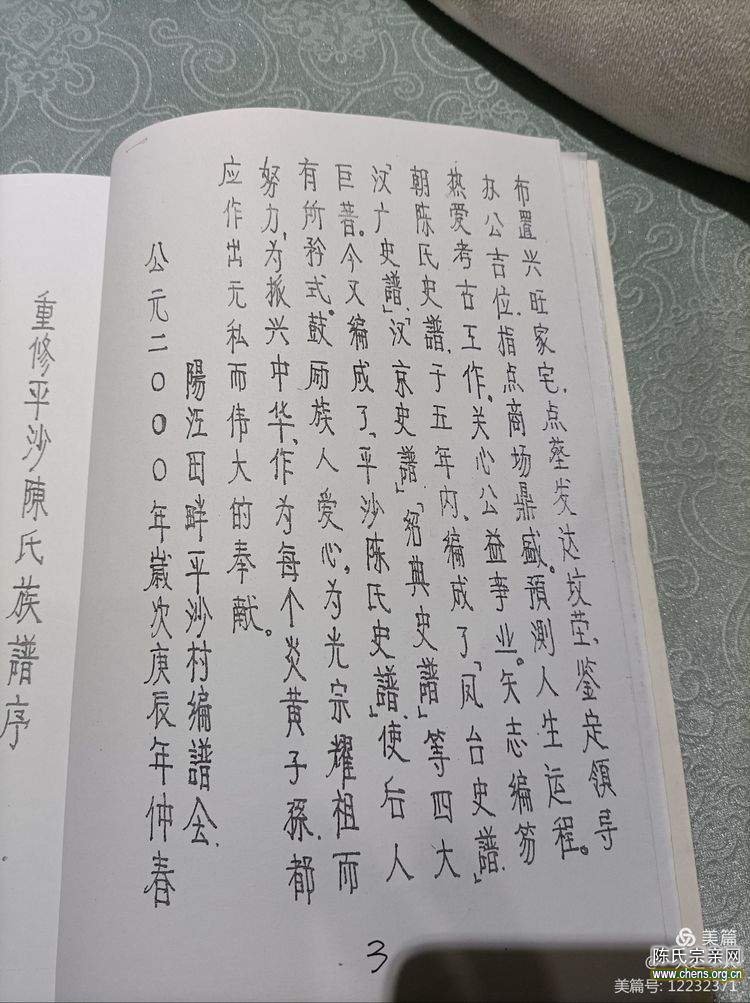 布置兴旺家宅、点塟发达坟茔、鉴定領导
办公吉位、指点商场鼎盛。預測人生运程。
热爱考古工作。关心公益事业。矢志编笏
朝陈氏史譜、于五年内、编成了「凤台史譜」
「汉广史譜」「汉京史譜」「绍典史譜」等四大
巨著。今又编成了「平沙陈氏史譜」使后人
有所矜式。鼓励族人爱心。为光宗耀祖而
努力，为振兴中华、作为每个炎黄子孫、都
应作出无私而伟大的奉献。
陽江田畔平沙村编譜会
公元二〇〇〇年歲次庚辰年仲春
重修平沙陳氏族譜序
3
美篇
陈氏宗亲网
www.chens.org.cn
美篇号: 12232371